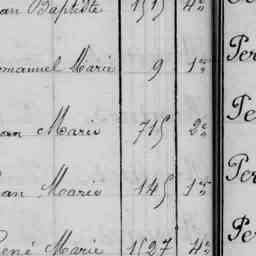 an Baptiste 1515 4e
manuel Marie 9 1re Per
an Marie 715 2e Pe
an Marie 145 1re Per
ené Marie 1527 4e Pe